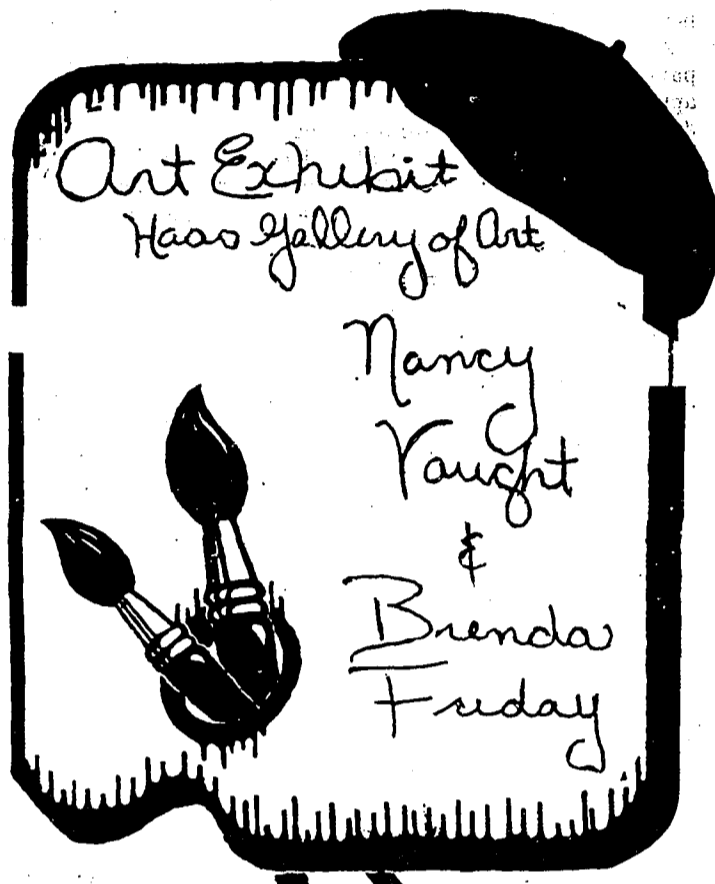 Art Exhibit
Haas Gallery of Art
Nancy
Vaught
&
Brenda
Friday